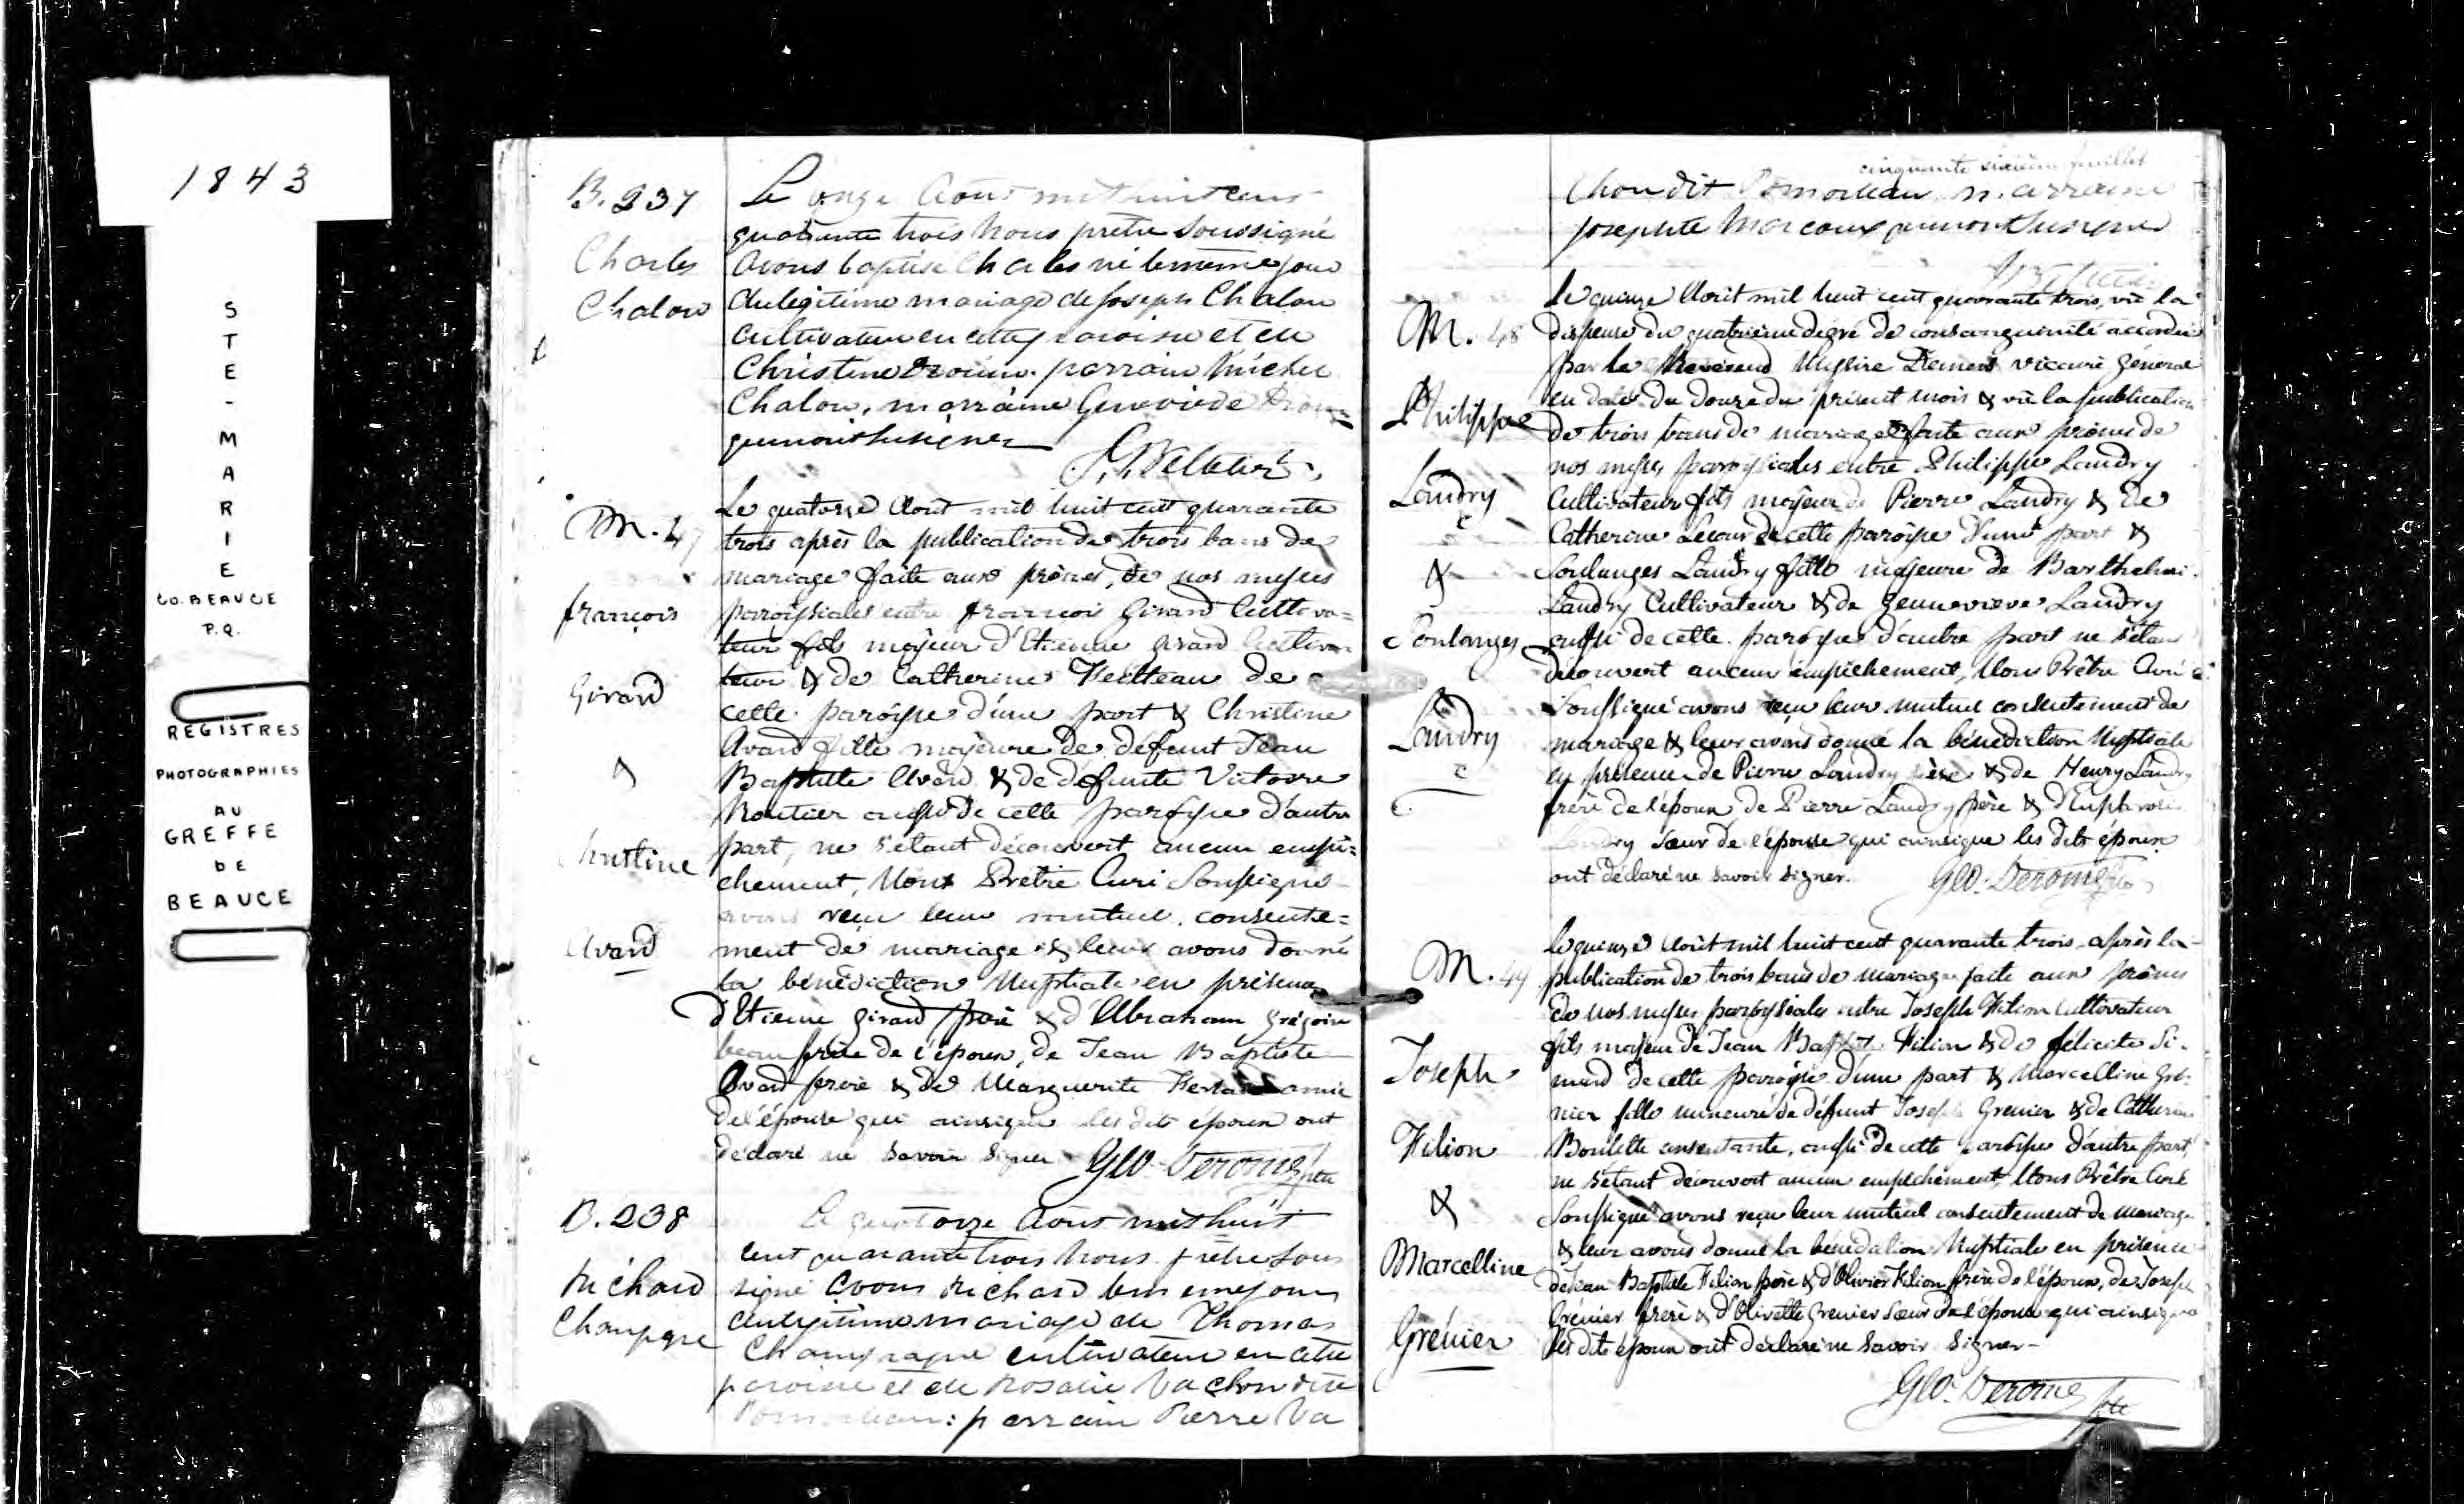 1843
STE-MARIE
CO. BEAUCE
P.Q.
REGISTRES
PHOTOGRAPHIES
AU
GREFFE
DE
BEAUCE
B. 237
Charles
Chalou
Le onze Août mil huit cent
quarante trois nous prêtre soussigné
avons baptisé Charles né le même jour
du légitime mariage de Joseph Chalou
cultivateur en cette paroisse et de
Christine Drouin. parrain Michel
Chalou, marraine Geneviève
qui n'ont su signer
M. 47
françois
Girard
&
Christine
Avard
Le quatorze Août mil huit cent quarante
trois après la publication de trois bans de
mariage faite aux prônes, de nos messes
paroissiales entre françois Girard Cultiva=
teur fils majeur d'Etienne Girard Cultiva=
teur & de Catherine de
cette paroisse d'une part & Christine
Avard fille majeure de défunt Jean
Baptiste Avard & de défunte Victoire
Routier aussi de cette paroisse d'autre
part, ne s'étant découvert aucun empê=
chement, Nous Prêtre Curé Soussigné
avons reçu leur mutuel consente=
ment de mariage & leur avons donné
la bénédiction Nuptiale en présence
d'Etienne Girard père & d'Abraham Grégoire
beau frère de l'époux, de Jean Baptiste
Avard frère & de Marguerite amie
de l'épouse qui ainsi que les dits époux ont
déclaré ne savoir signer Geo. Derome Ptre
B. 238
Richard
Champagne
Le quatorze Août mil huit
cent quarante trois nous prêtre sous
signé avons Richard le même jour
du légitime mariage de Thomas
Champagne cultivateur en cette
paroisse et de Rosalie Vachon dite
Pomerleau: parrain Pierre Va
cinquante sixième feuillet
chon dit Pomerleau marraine
Josephte Marcoux qui n'ont su signer
M. 48
Philippe
Landry
&
Soulanges
Landry
le quinze Août mil huit cent quarante trois, vu la
dispense du quatrième degré de consanguinité accordée
par le Révérend Messire Demers vicaire général
en date du douze du présent mois & vu la publication
de trois bans de mariage faite aux prônes de
nos messes paroissiales entre Philippe Landry
Cultivateur fils majeur de Pierre Landry & de
Catherine de cette paroisse d'une part &
Soulanges Landry fille majeure de Barthelmi
Landry Cultivateur & de Genneviève Landry
aussi de cette paroisse d'autre part ne s'étant
découvert aucun empêchement, Nous Prêtre Curé
Soussigné avons reçu leur mutuel consentement de
mariage & leur avons donné la bénédiction Nuptiale
en présence de Pierre Landry père & de Henry Landry
frère de l'époux de Pierre Landry père &
Landry sœur de l'épouse qui ainsi que les dits époux
ont déclaré ne savoir signer. Geo. Derome Ptre
M. 49
Joseph
Filion
&
Marcelline
Grenier
le quinze Août mil huit cent quarante trois après la
publication de trois bans de mariage faite aux prônes
de nos messes paroissiales entre Joseph Filion Cultivateur
fils majeur de Jean Baptiste Filion & de félicité Si=
mard de cette paroisse d'une part & Marcelline Gre=
nier fille mineure de défunt Joseph Grenier & de Catherine
Boulette consentante, aussi de cette paroisse d'autre part
ne s'étant découvert aucun empêchement, Nous Prêtre Curé
Soussigné avons reçu leur mutuel consentement de mariage
& leur avons donné la bénédiction Nuptiale en présence
de Jean Baptiste Filion père & d'Olivier Filion frère de l'époux, de Joseph
Grenier frère & d'Olivette Grenier sœur de l'épouse qui ainsi que
les dits époux ont déclaré ne savoir signer -
Geo. Derome Ptre